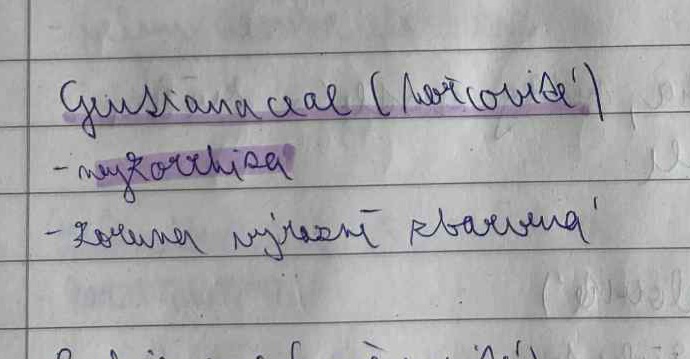 Gentianaceae (hořcovité)
- mykorrhiza
- koruna výrazně zbarvená